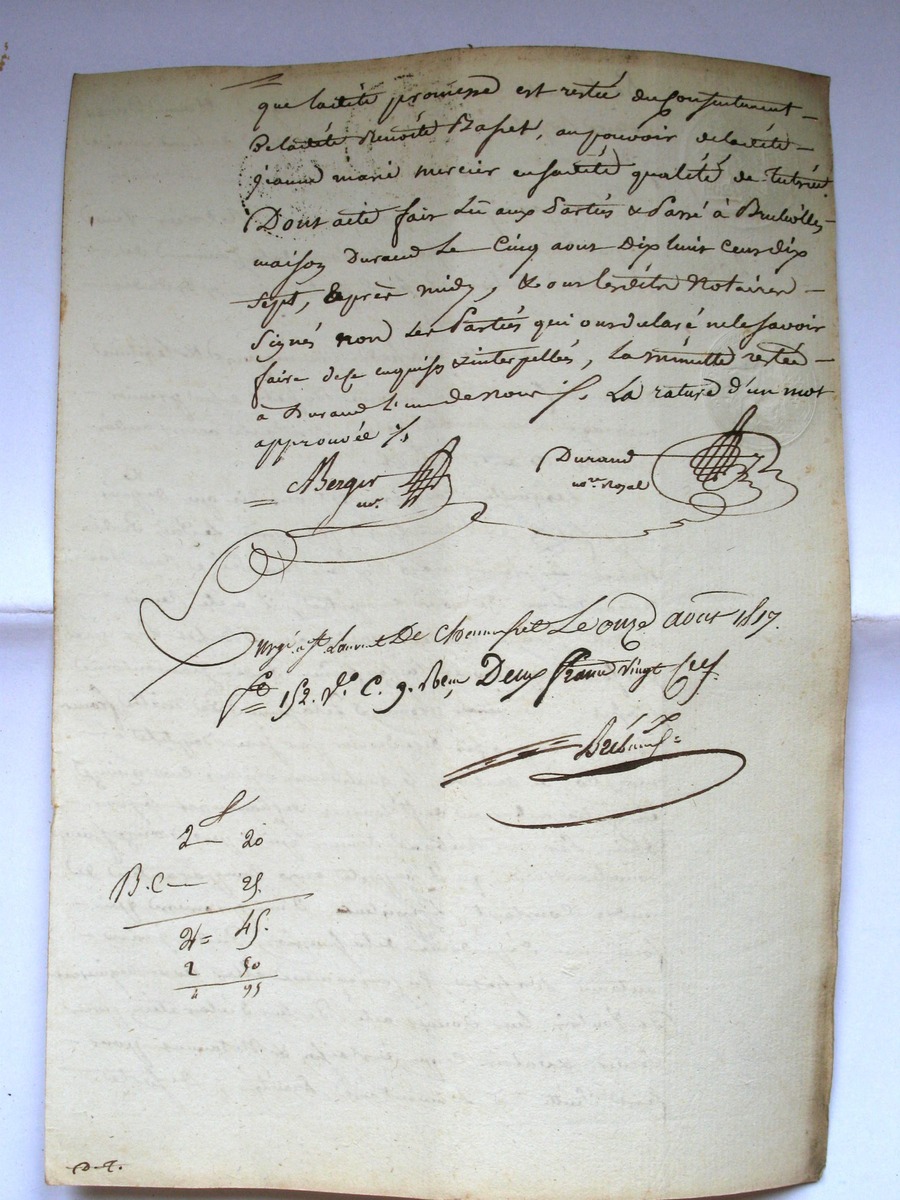 que ladite promesse est restée du consentement
de ladite Benoite Basset, au pouvoir de ladite
jeanne marie mercier en sadite qualité de tutrice.
Dont acte fait Lû aux Parties & Passé à Brulliolles
maison Durand Le Cinq aout Dix huit cent dix
sept, après midy, & ont lesdits Notaires
signés non Les Parties qui ont declaré ne le savoir
faire de ce enquises & interpellés, La minutte restée
à Durand l'un de nous ./. La rature d'un mot
approuvée ./.
Berger
nre.
Durand
nore. Royal
à St. Laurent De Chamousset Le onze août 1817.
fo 152. Vo. C. 9. Deux francs vingt Cent.
2 f 20
B.C — 25.
2 = 45.
2 50
4 95
D.T.